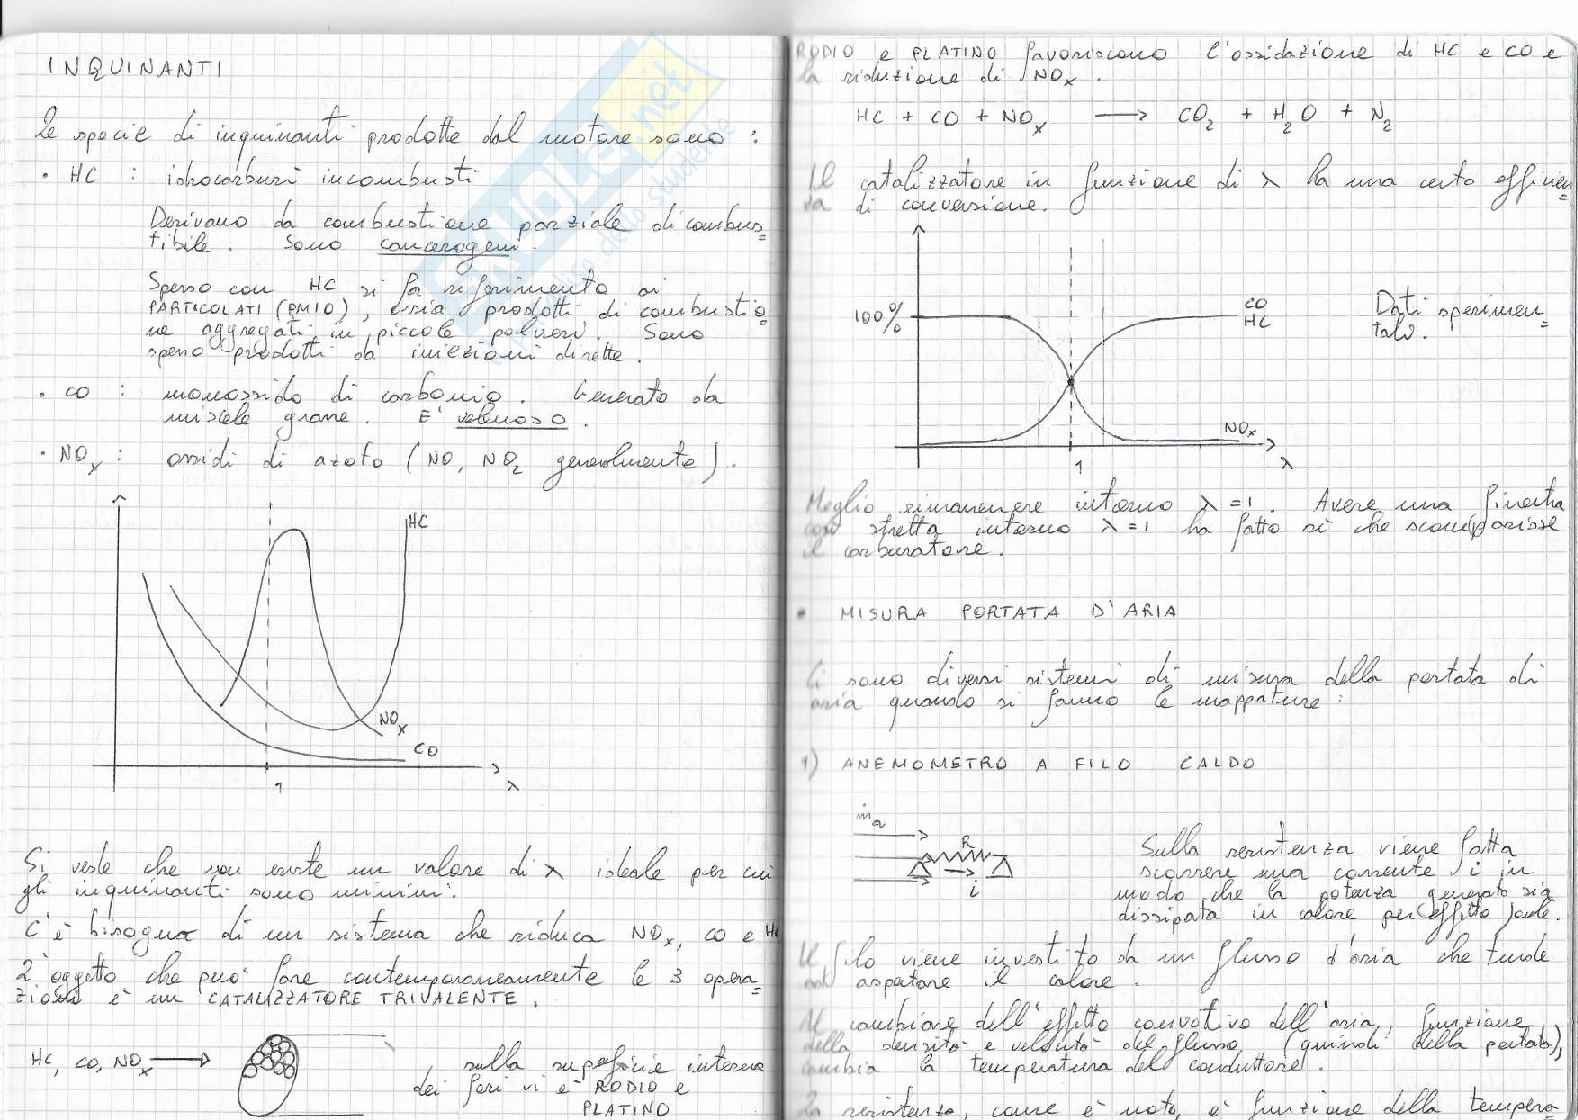 INQUINANTI
Le specie di inquinanti prodotte dal motore sono :
• HC : idrocarburi incombusti
Derivano da combustione parziale di combus=
tibile. Sono cancerogeni.
Spesso con HC si fa riferimento ai
PARTICOLATI (PM10), ossia prodotti di combustio=
ne aggregati in piccole polveri. Sono
spesso prodotti da iniezioni dirette.
• CO : monossido di carbonio. Generato da
miscele grasse. E' velenoso.
• NOx : ossidi di azoto (NO, NO2 generalmente).
HC
NOx
CO
1
λ
Si vede che non esiste un valore di λ ideale per cui
gli inquinanti sono minimi.
C'è bisogno di un sistema che riduca NOx, CO e HC
L'oggetto che può fare contemporaneamente le 3 opera=
zioni è un CATALIZZATORE TRIVALENTE.
HC, CO, NOx →
sulla superficie interna
dei fori vi è RODIO e
PLATINO
RODIO e PLATINO favoriscono l'ossidazione di HC e CO e
la riduzione di NOx.
HC + CO + NOx → CO2 + H2O + N2
Il catalizzatore in funzione di λ ha una certa efficien=
za di conversione.
100%
CO
HC
Dati sperimen=
tali.
NOx
1
λ
Meglio rimanere intorno λ=1. Avere una finestra
così stretta intorno λ=1 ha fatto sì che scomparisse
il carburatore.
• MISURA PORTATA D'ARIA
Ci sono diversi sistemi di misura della portata di
aria quando si fanno le mappature :
1) ANEMOMETRO A FILO CALDO
ṁa
R
i
Sulla resistenza viene fatta
scorrere una corrente i in
modo che la potenza generata sia
dissipata in calore per effetto Joule.
Il filo viene investito da un flusso d'aria che tende
ad asportare il calore.
Al cambiare dell'effetto convettivo dell'aria, funzione
della densità e velocità del flusso (quindi della portata),
cambia la temperatura del conduttore.
La resistenza, come è noto, è funzione della tempera=